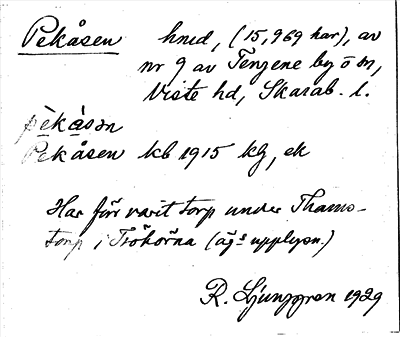 Pekåsen hmd, (15,969 har), av
nr 9 av Tengene by o sn,
Viste hd, Skarab. l.
pèkàsən
Pekåsen kb 1915 kg, ek
Har förr varit torp under Thams-
torp i Trökörna (äg:s upplysn.)
R. Ljunggren 1929